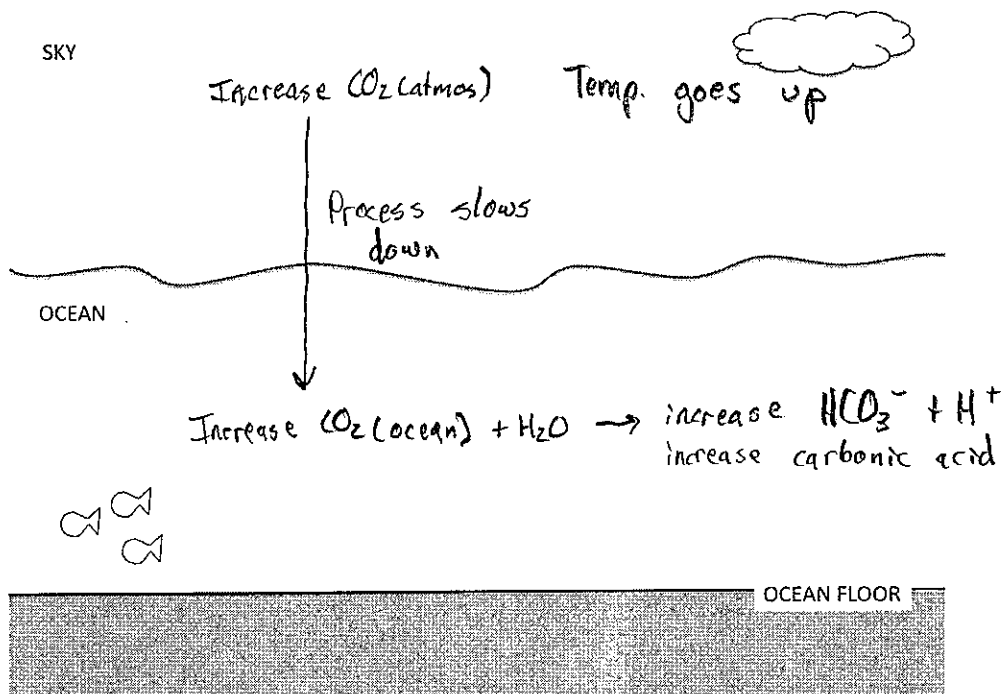 SKY
Increase CO₂ (atmos) Temp. goes up
Process slows
down
OCEAN
Increase CO₂ (ocean) + H₂O → increase HCO₃⁻ + H⁺
increase carbonic acid
OCEAN FLOOR